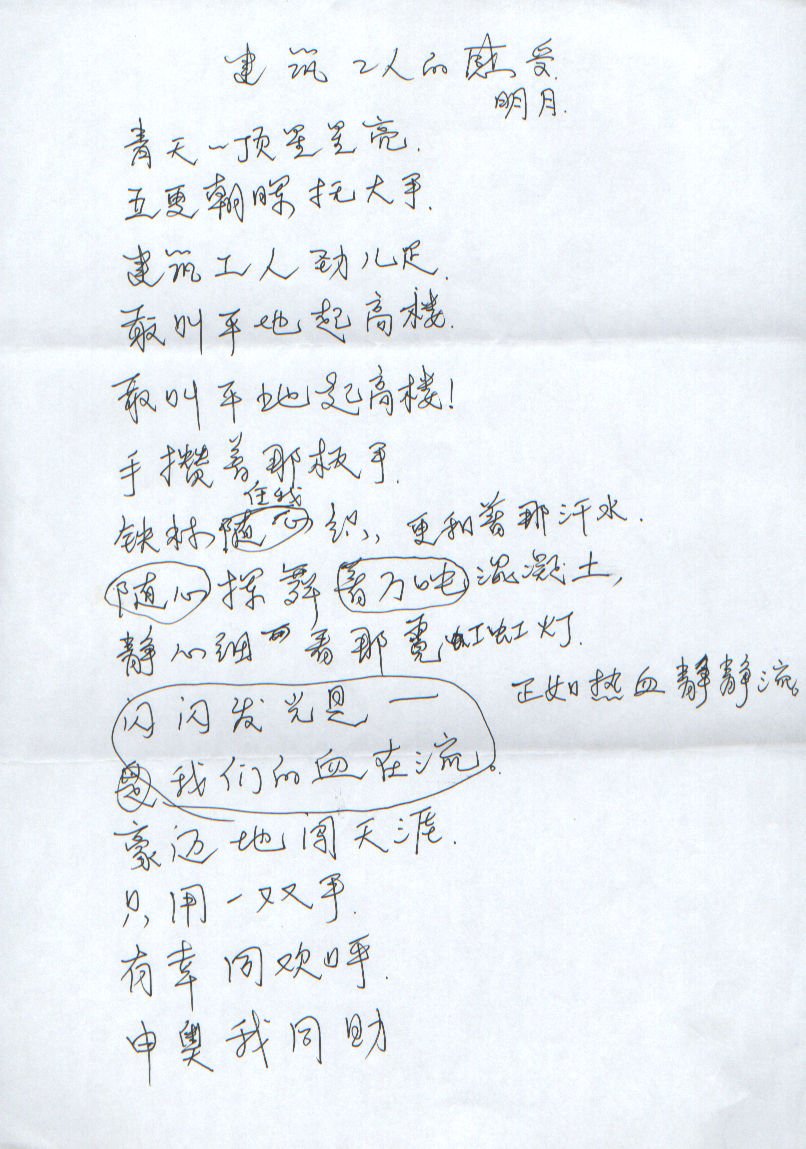 建筑工人的感受
明月.
青天一顶星星亮.
五更朝晖托大手.
建筑工人劲儿足.
敢叫平地起高楼.
敢叫平地起高楼!
手攒着那板手.
任我
铁材随心织, 更和着那汗水.
随心挥舞着万吨混凝土,
静心细看那霓虹虹灯.
正如热血静静流。
闪闪发光是一
是我们的血在流。
豪迈地闯天涯.
只用一双手.
有幸同欢呼.
申奥我同助